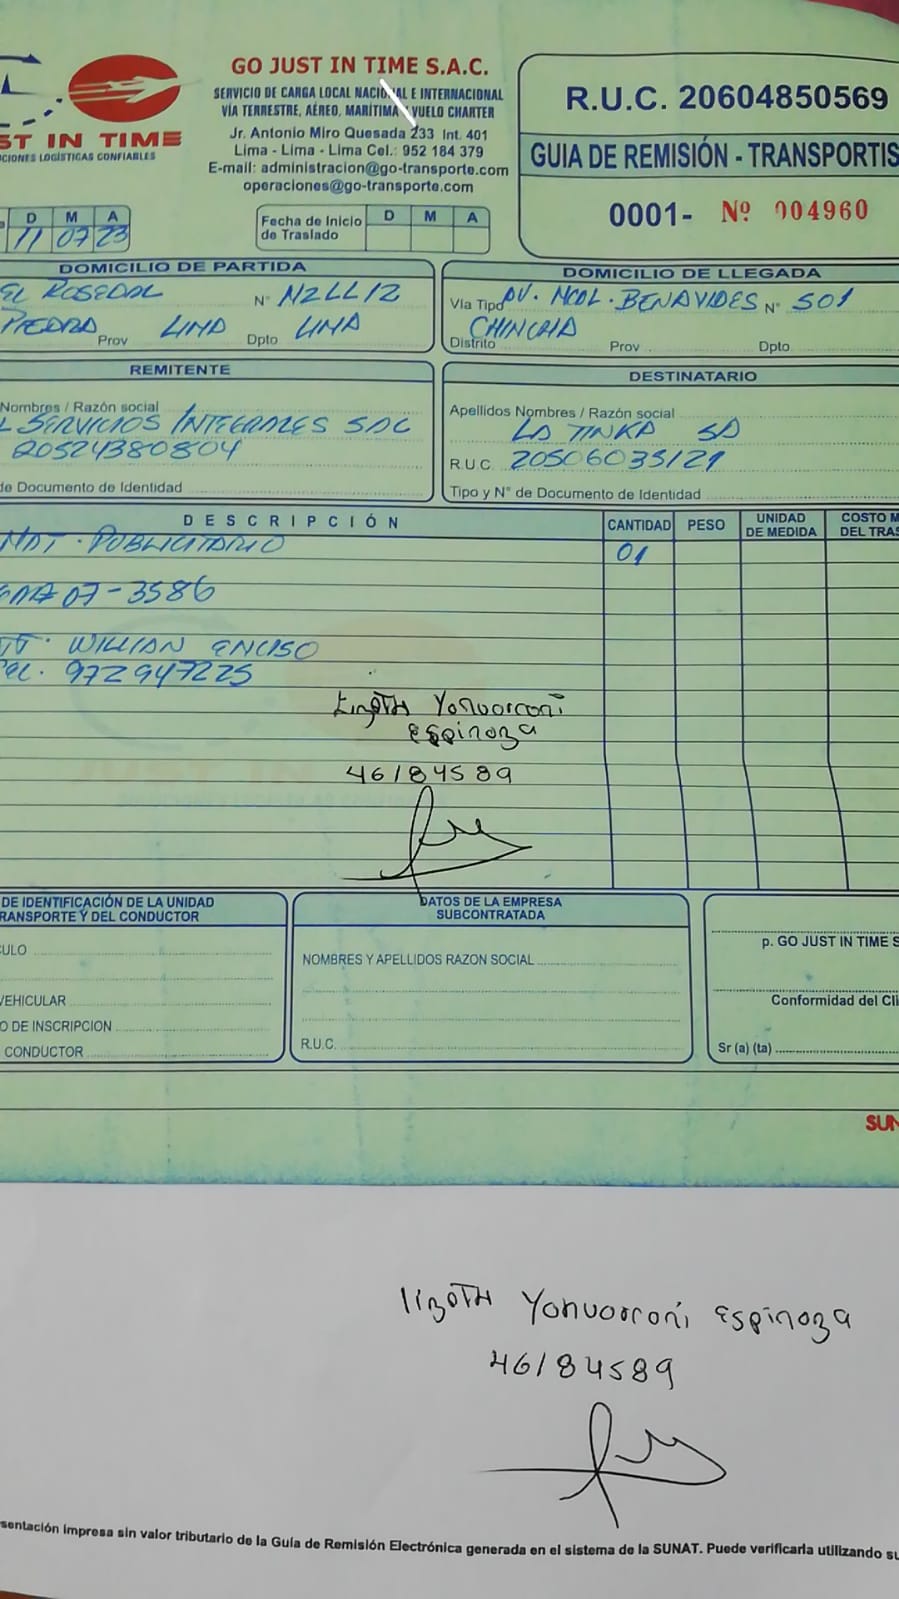 GO JUST IN TIME S.A.C.
SERVICIO DE CARGA LOCAL NACIONAL E INTERNACIONAL
VÍA TERRESTRE, AÉREO, MARÍTIMA VUELO CHARTER
Jr. Antonio Miro Quesada 233 Int. 401
Lima - Lima - Lima Cel.: 952 184 379
E-mail: administracion@go-transporte.com
operaciones@go-transporte.com
ST IN TIME
CIONES LOGÍSTICAS CONFIABLES
R.U.C. 20604850569
GUIA DE REMISIÓN - TRANSPORTIS
0001- Nº 004960
D M A
11 07 23
Fecha de Inicio de Traslado D M A
DOMICILIO DE PARTIDA
EL ROSEDAL N° MZLL12
PIEDRA Prov LIMA Dpto LIMA
DOMICILIO DE LLEGADA
Vía Tipo AV. MCAL. BENAVIDES N° 501
CHINCHA
Distrito Prov Dpto
REMITENTE
Nombres / Razón social
L SERVICIOS INTEGRALES SAC
20524380804
de Documento de Identidad
DESTINATARIO
Apellidos Nombres / Razón social
LA TINKA SA
R.U.C. 20506035121
Tipo y N° de Documento de Identidad
DESCRIPCIÓN CANTIDAD PESO UNIDAD DE MEDIDA COSTO M DEL TRAS
MAT. PUBLICITARIO 01
07-3586
WILLIAN ENCISO
972947225
Lizeth Yanuarconi
Espinoza
46184589
DE IDENTIFICACIÓN DE LA UNIDAD
RANSPORTE Y DEL CONDUCTOR
CULO
VEHICULAR
O DE INSCRIPCION
CONDUCTOR
DATOS DE LA EMPRESA
SUBCONTRATADA
NOMBRES Y APELLIDOS RAZON SOCIAL
R.U.C.
p. GO JUST IN TIME S
Conformidad del Cli
Sr (a) (ta)
SUN
lizeth Yanuarconi Espinoza
46184589
sentación impresa sin valor tributario de la Guía de Remisión Electrónica generada en el sistema de la SUNAT. Puede verificarla utilizando su